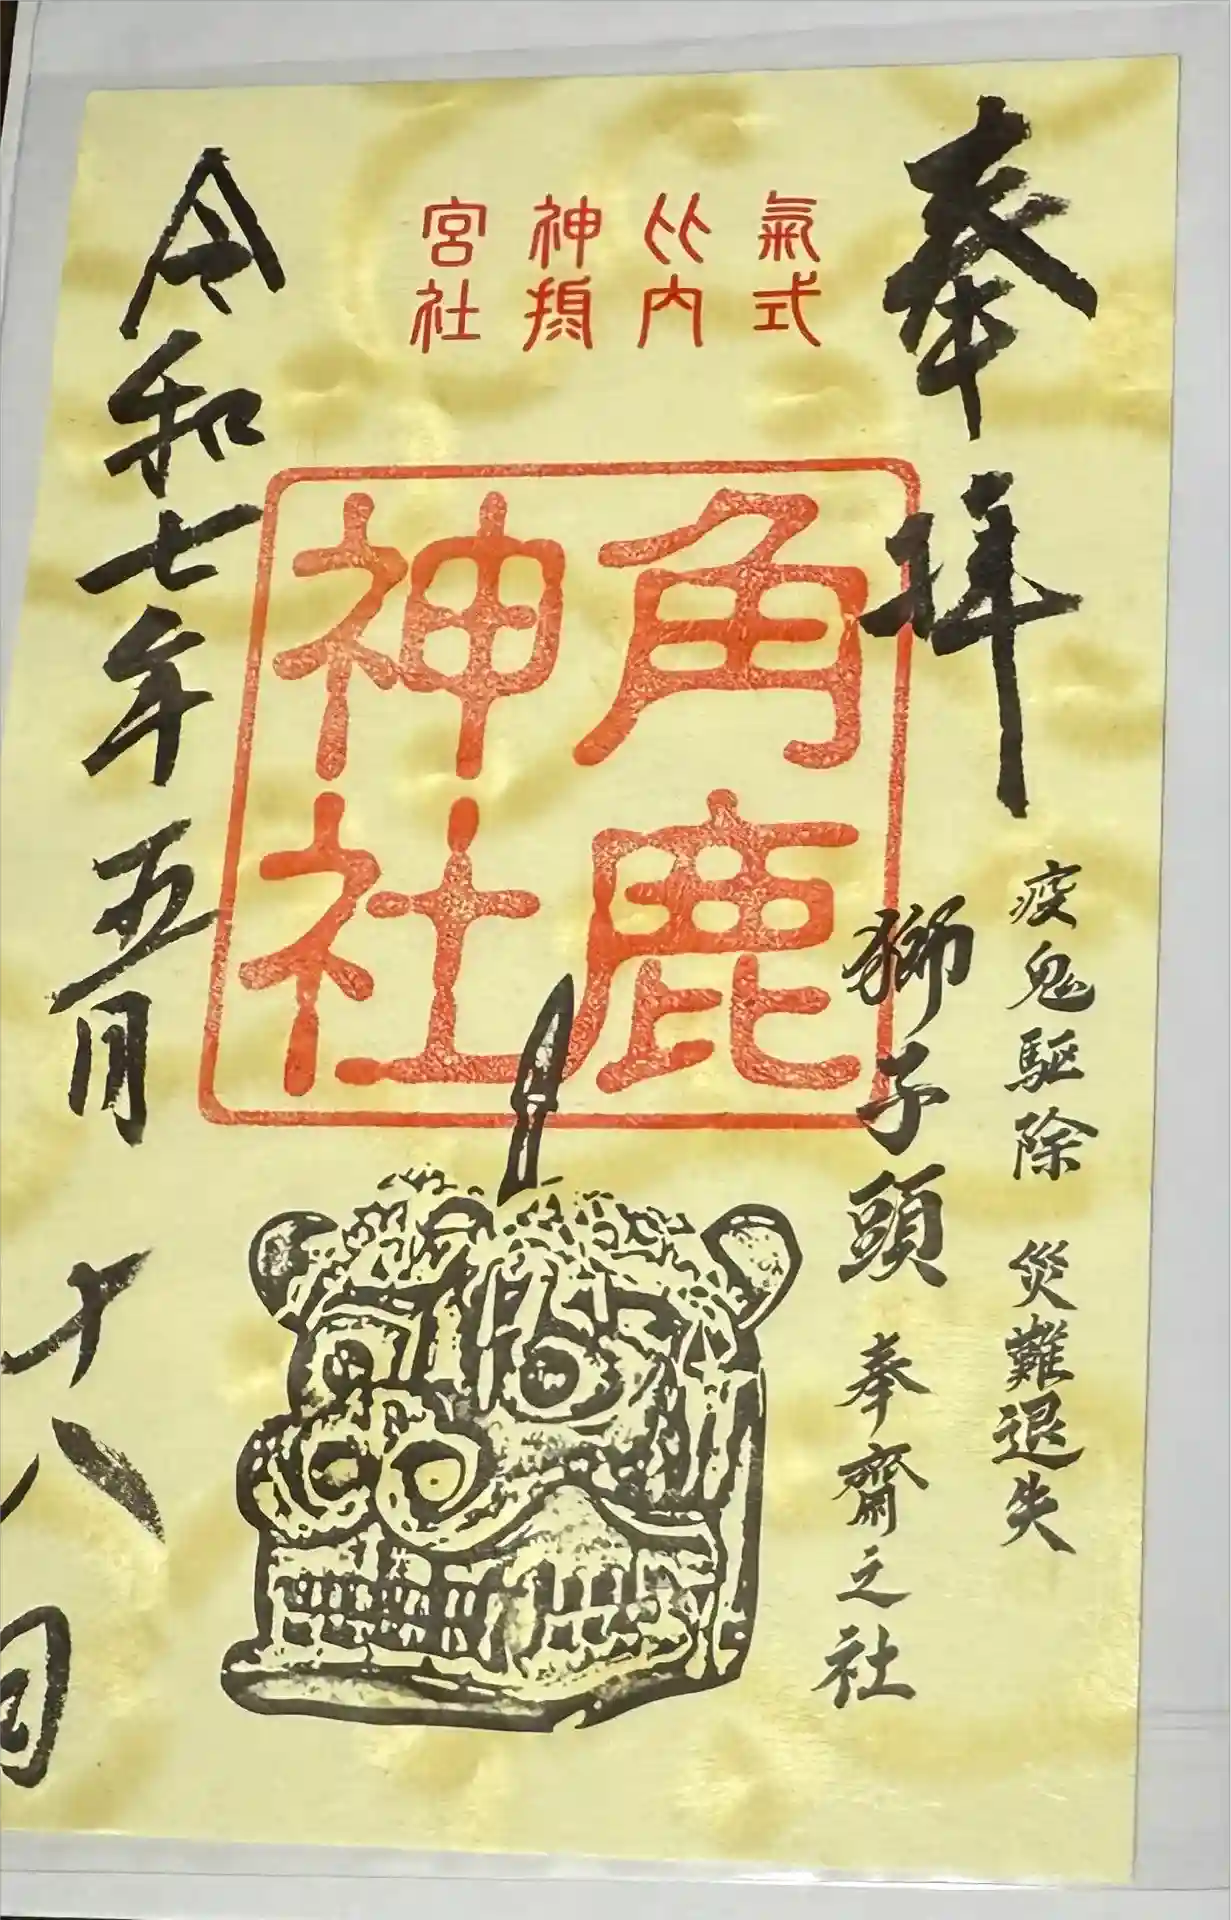 奉拝
疫鬼駆除 災難退失
獅子頭 奉齋之社
氣比神宮
式内摂社
角鹿
神社
令和七年五月十八日